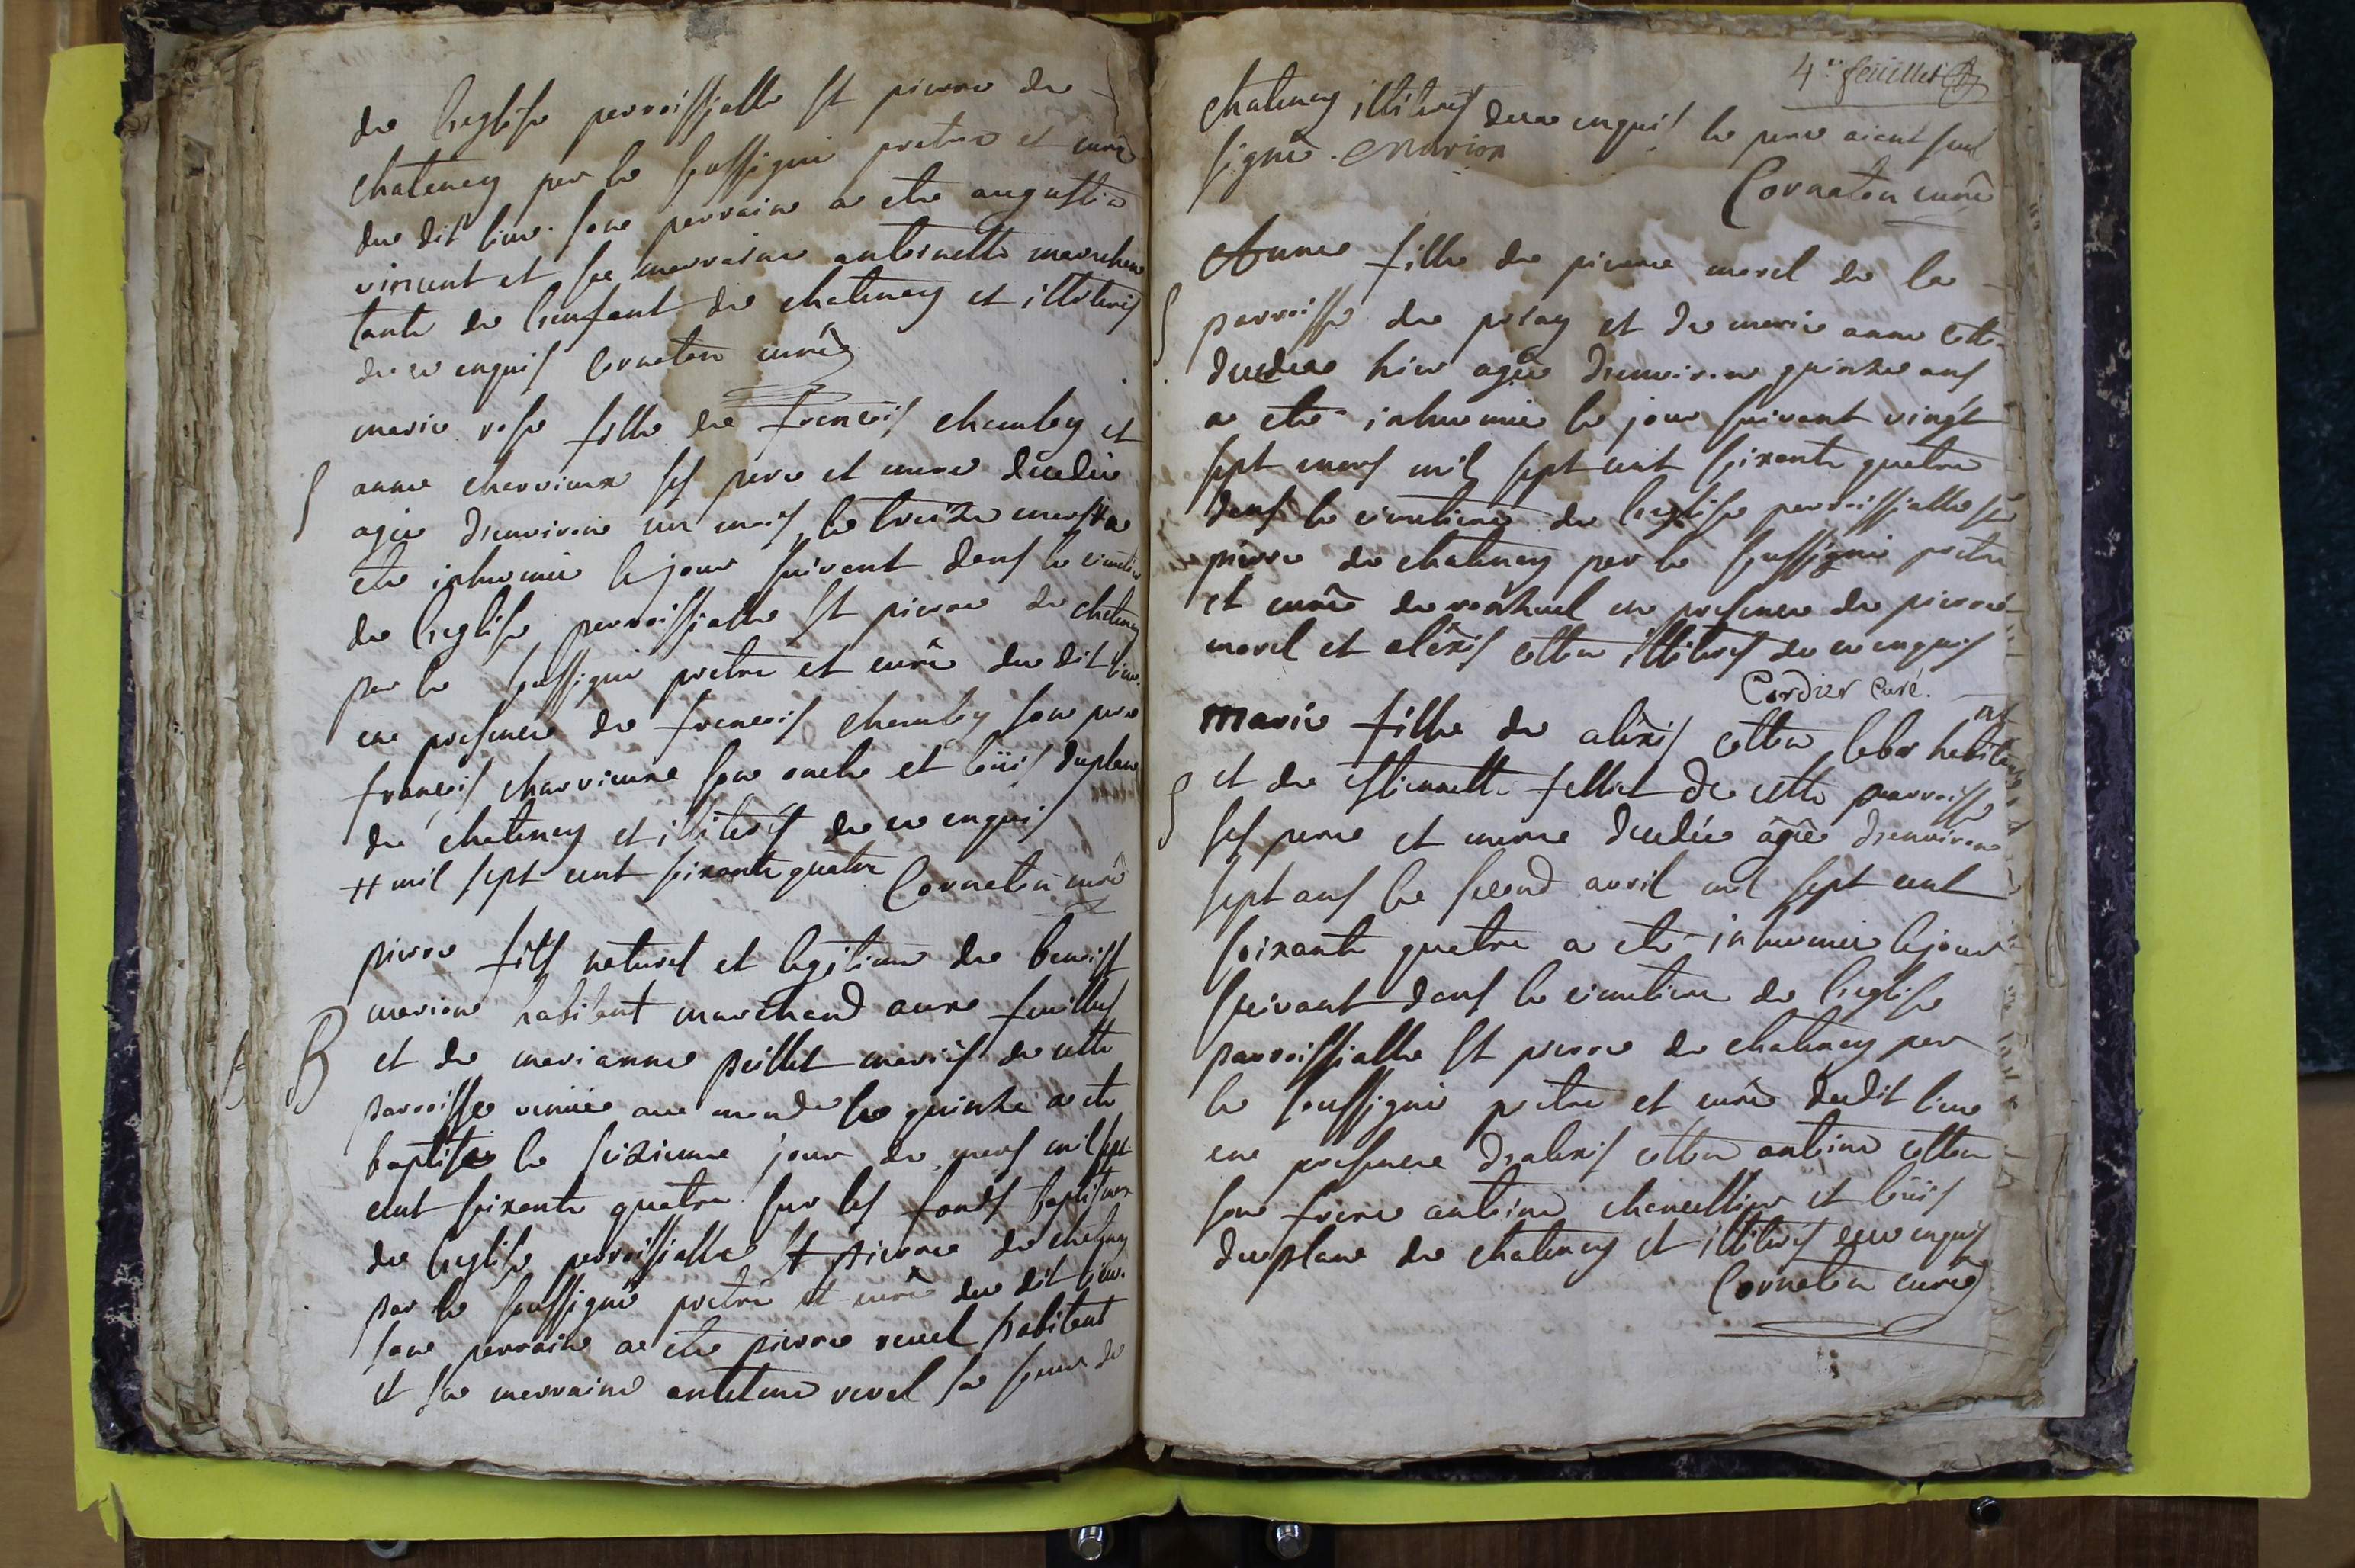 de l'eglise parroissialle St pierre de
chatenay par le soussigné pretre et curé
du dit lieu. son parrain a eté augustin
vincent et sa marraine antoinette
tante de l'enfant de chatenay et illiterés
de ce enquis Cornaton curé
marie rose fille de francois chambey et
anne charvieux ses pere et mere décedée
agée d'environ un mois le treize mars # a
eté inhumée le jour suivant dans le cimetiere
de l'eglise parroissialle St pierre de chatenay
par le soussigné pretre et curé du dit lieu.
en presence de francois chambey son pere
francois charvieux son oncle et loüis duplan
de chatenay et illiterés de ce enquis
# mil sept cent soixante quatre Cornaton curé
pierre fils naturel et legitime de benoist
marion habitant marchand aux feuilles
et de marianne peillet mariés de cette
parroisse venüe au monde le quinze a eté
baptisée le seizieme jour de mars mil sept
cent soixante quatre sur les fonds baptismaux
de l'eglise parroissialle St pierre de chatenay
par le soussigné pretre et curé du dit lieu.
son parrain a eté pierre revel habitant
et sa marraine revel sa soeur de
4e. feüillet
chatenay illiterés de ce enquis le pere aient seul
signé. Marion
Cornaton curé
Anne fille de pierre morel de la
parroisse de et de marie anne cotton
decedée hier agée d'environ quinze ans
a eté inhumée le jour suivant vingt
sept mars mil sept cent soixante quatre
dans le cimetiere de l'eglise parroissialle St
pierre de chatenay par le soussigné pretre
et curé de en presence de pierre
morel et aléxis cotton illiterés de ce enquis
Cordier Curé.
Marie fille de aléxis cotton labor habitant
et de estiennette felliet de cette parroisse
ses pere et mere decedée âgée d'environ
sept ans le second avril mil sept cent
soixante quatre a eté inhumée le jour
suivant dans le cimetiere de l'eglise
parroissialle St pierre de chatenay par
le soussigné pretre et curé dudit lieu
en presence d'alexis cotton antoine cotton
son frere antoine et loüis
duplan de chatenay et illiterés de ce enquis
Cornaton curé